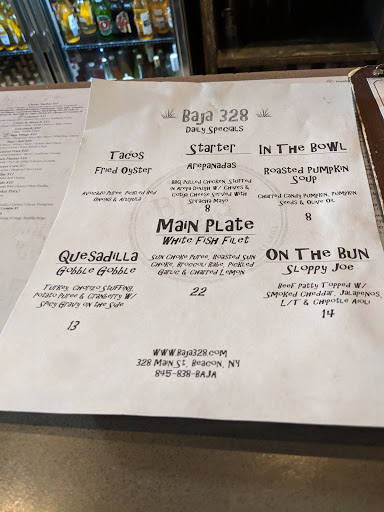 Baja 328
Daily Specials
Tacos
Fried Oyster
Avocado Puree, Pickled Red
Onions & Arugula
Starter
Arepanadas
BBQ Pulled Chicken, Stuffed
in Arepa Dough w/ Chives &
Cotija Cheese Served with
Sriracha Mayo
8
In The Bowl
Roasted Pumpkin
Soup
Charred Candy Pumpkin, Pumpkin
Seeds & Olive Oil
8
Main Plate
White Fish Filet
Sun Choke Puree, Roasted Sun
Choke, Broccoli Rabe, Pickled
Garlic & Charred Lemon
22
Quesadilla
Gobble Gobble
Turkey, Chorizo Stuffing,
Potato Puree & Cranberry w/
Spicy Gravy on the Side
13
On The Bun
Sloppy Joe
Beef Patty Topped w/
Smoked Cheddar, Jalapenos,
L/T & Chipotle Aioli
14
www.Baja328.com
328 Main St, Beacon, NY
845-838-BAJA